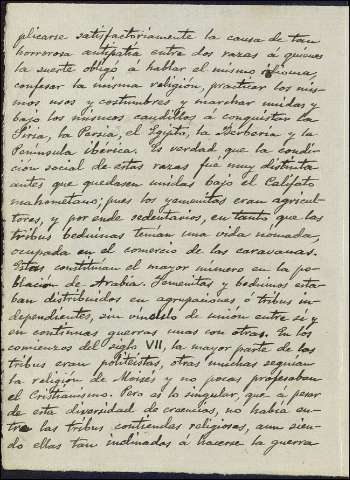 plicarse satisfactoriamente la causa de tan
horrorosa antipatia entre dos razas a quienes
la suerte obligó a hablar el mismo idioma,
confesar la misma religión, practicar los mis-
mos usos y costumbres y marchar unidas y
bajo los mismos caudillos á conquistar la
Siria, la Persia, el Egipto, la Berberia y la
Península ibérica. Es verdad que la condi-
ción social de estas razas fué muy distinta
antes que quedasen unidas bajo el Califato
mahometano; pues los yemenitas eran agricul-
tores, y por ende sedentarios, en tanto que las
tribus beduinas tenían una vida nómada,
ocupada en el comercio de las caravanas.
Estas constituían el mayor numero en la po-
blación de Arabia. Yemenitas y beduinos esta-
ban distribuidos en agrupaciones ó tribus in-
dependientes, sin vinculo de unión entre si y
en continuas guerras unas con otras. En los
comienzos del siglo VII, la mayor parte de las
tribus eran politeistas, otras muchas seguian
la religion de Moisés y no pocas profesaban
el Cristianismo. Pero es lo singular, que a pesar
de esta diversidad de creencias, no había en-
tre las tribus contiendas religiosas, aun sien-
do ellas tan inclinadas á hacerse la guerra